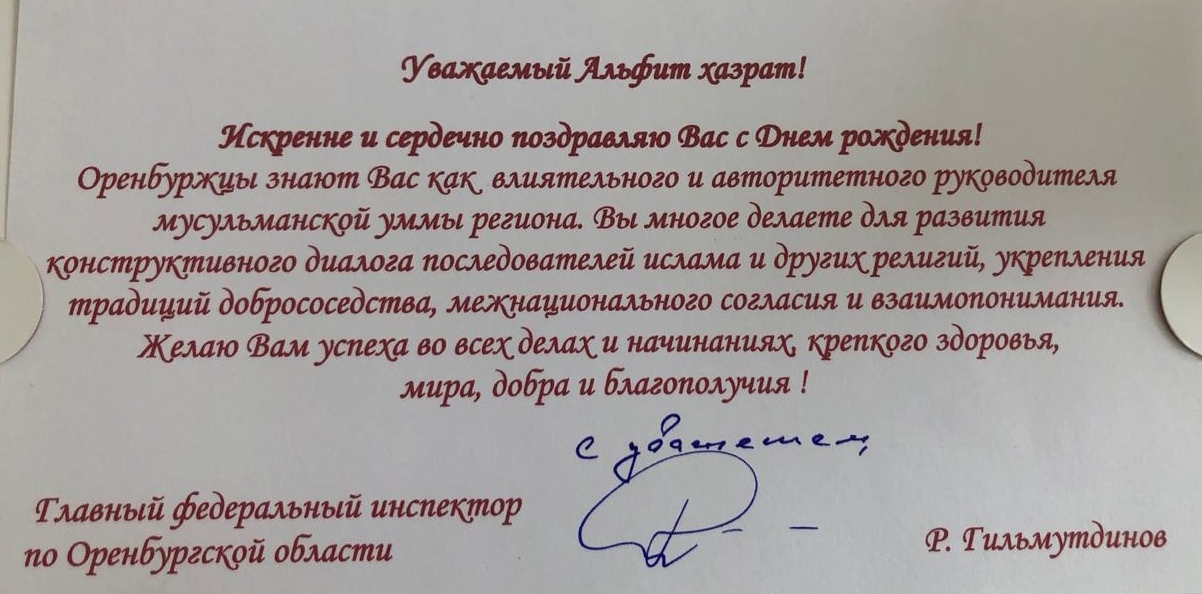 Уважаемый Альфит хазрат!
Искренне и сердечно поздравляю Вас с Днем рождения!
Оренбуржцы знают Вас как влиятельного и авторитетного руководителя
мусульманской уммы региона. Вы многое делаете для развития
конструктивного диалога последователей ислама и других религий, укрепления
традиций добрососедства, межнационального согласия и взаимопонимания.
Желаю Вам успеха во всех делах и начинаниях, крепкого здоровья,
мира, добра и благополучия !
с уважением,
Главный федеральный инспектор
по Оренбургской области
Р. Гильмутдинов